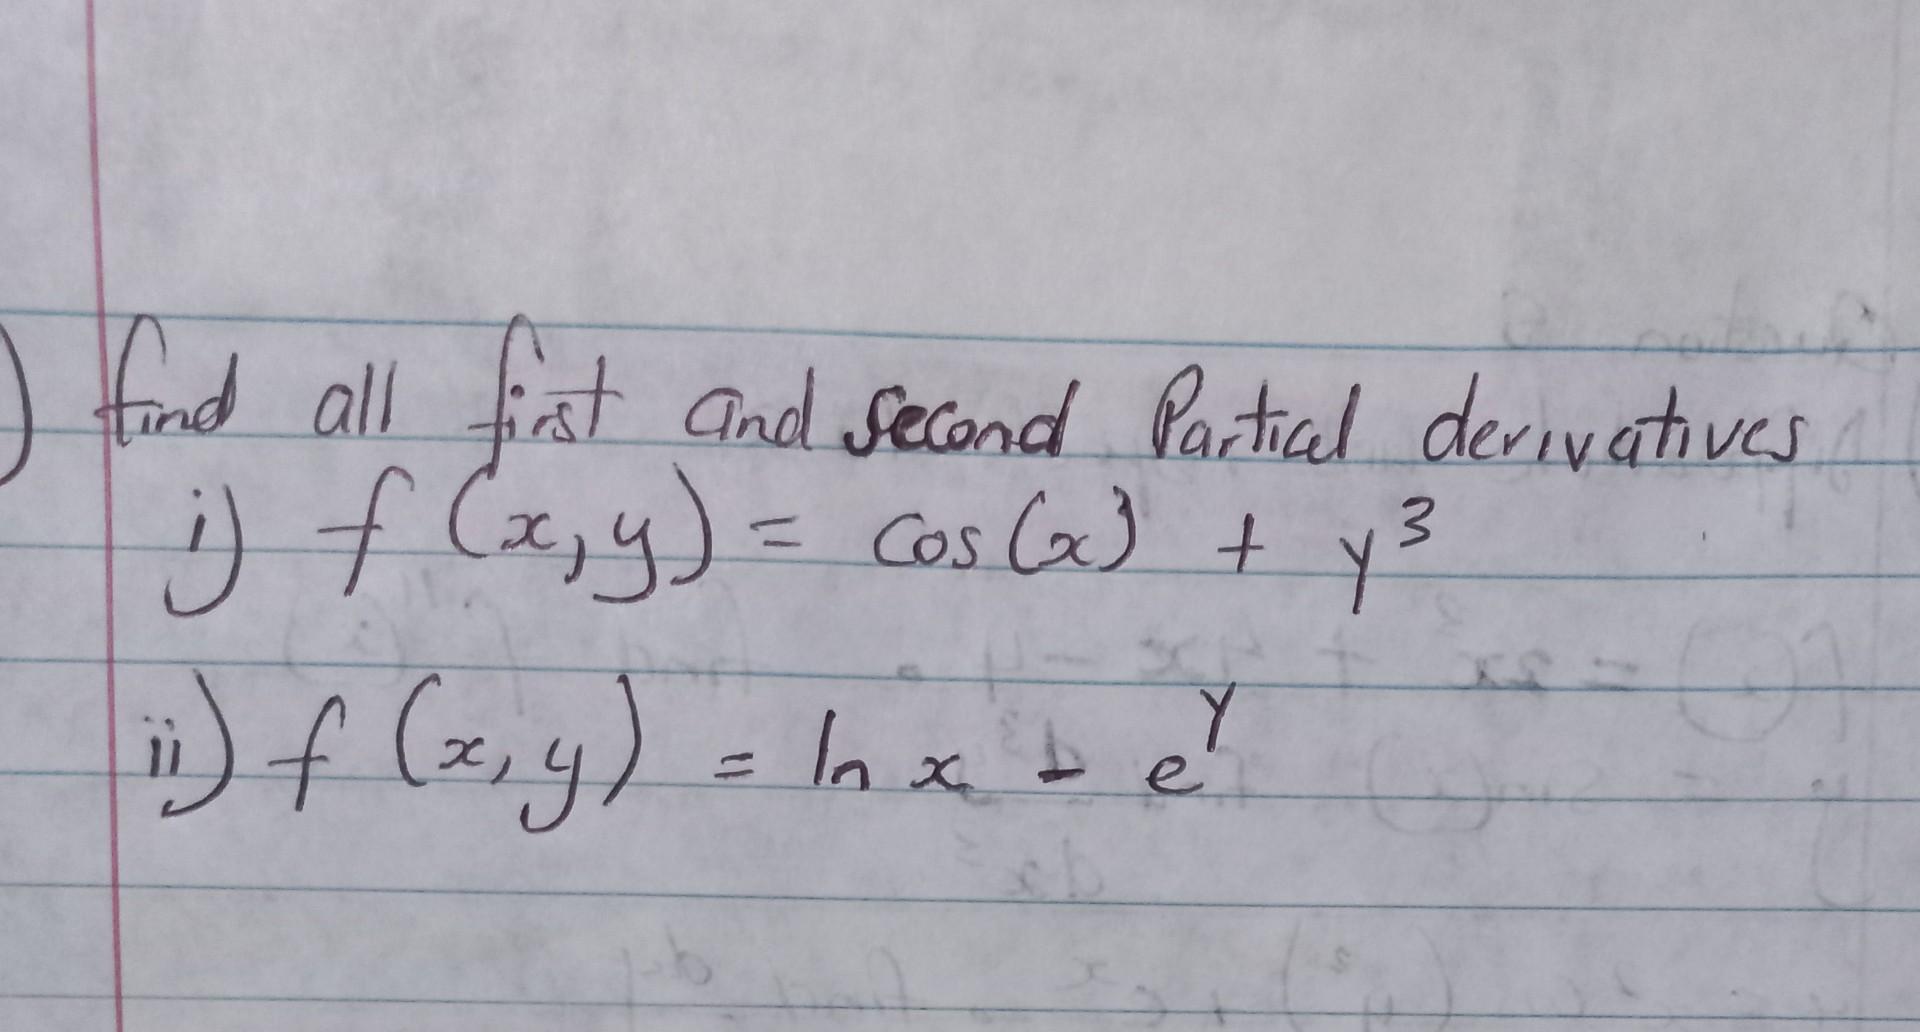 ) find all first and second Partial derivatives
i) f (x, y) = cos(x) + y³
ii) f (x, y) = ln x - e^y